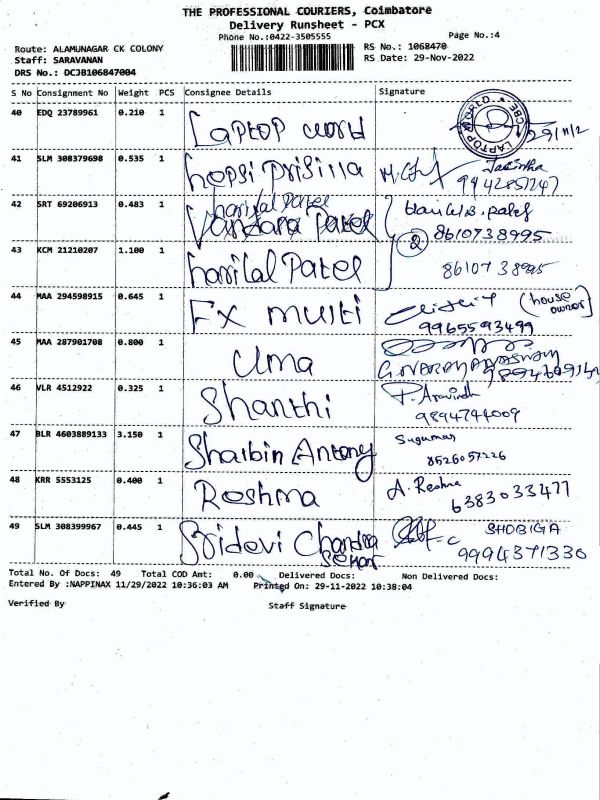 THE PROFESSIONAL COURIERS, Coimbatore
Delivery Runsheet - PCX
Phone No.:0422-3505555
Page No.:4
Route: ALAMUNAGAR CK COLONY
RS No.: 1068470
Staff: SARAVANAN
RS Date: 29-Nov-2022
DRS No.: DCJB106847004
S No Consignment No Weight PCS Consignee Details Signature
40 EDQ 23789961 0.210 1 Laptop world
LAPTOP WORLD
41 SLM 308379698 0.535 1 hepsi prisilla
9942857247
42 SRT 69206913 0.483 1 harilal Patel
Vandara Patel
8610738995
2
43 KCM 21210207 1.100 1 harilal Patel 8610738995
44 MAA 294598915 0.645 1 Fx multi (house owner)
9965593499
45 MAA 287901708 0.800 1 Uma
46 VLR 4512922 0.325 1 Shanthi P. Aravindh
9894744009
47 BLR 4603889133 3.150 1 Shaibin Antony Sugumar
8526057226
48 KRR 5553125 0.400 1 Reshma A. Reshma
6383033477
49 SLM 308399967 0.445 1 Sridevi Chandra sekar SHOBIGA
9994371330
Total No. Of Docs: 49 Total COD Amt: 0.00 Delivered Docs: Non Delivered Docs:
Entered By :NAPPINAX 11/29/2022 10:36:03 AM Printed On: 29-11-2022 10:38:04
Verified By Staff Signature